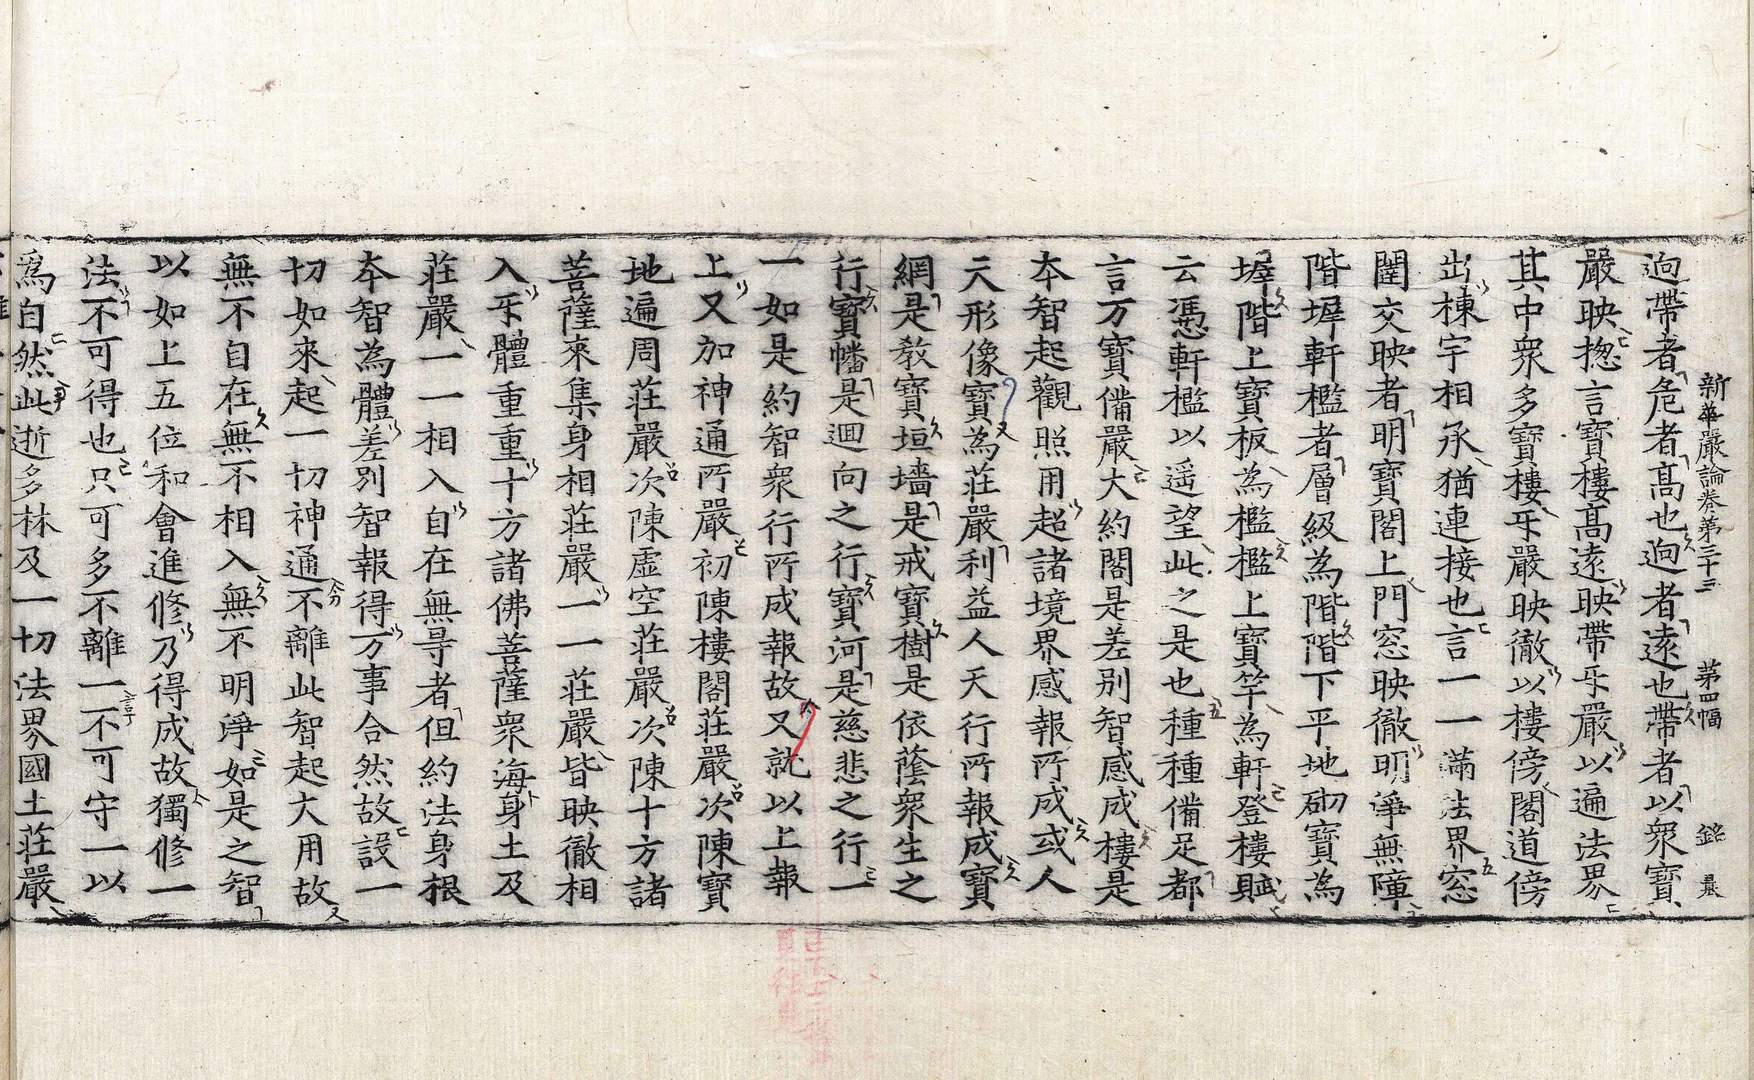 新華嚴論卷第三十三 第四幅 銘 㝡
逈帶者危者髙也逈者遠也帶者以衆寶
嚴映揔言寶樓髙遠映帶㸦嚴以遍法界
其中衆多寶樓㸦嚴映徹以樓傍閣道傍
出棟宇相承猶連接也言一一滿法界窓
闥交映者明寶閣上門窓映徹明淨無障
階墀軒檻者層級為階階下平地砌寶為
墀階上寶板為檻檻上寶竿為軒登樓賦
云憑軒檻以遥望此之是也種種備足都
言万寶備嚴大約閣是差别智感成樓是
夲智起觀照用超諸境界感報所成或人
天形像寶為莊嚴利益人天行所報成寶
網是教寶垣墻是戒寶樹是依蔭衆生之
行寶幡是迴向之行寶河是慈悲之行一
一如是約智衆行所成報故又就以上報
上又加神通所嚴初陳樓閣莊嚴次陳寶
地遍周莊嚴次陳虛空莊嚴次陳十方諸
菩薩來集身相莊嚴一一莊嚴皆映徹相
入㸦體重重十方諸佛菩薩衆海身土及
莊嚴一一相入自在無㝵者但約法身根
夲智為體差別智報得万事合然故設一
切如來起一切神通不離此智起大用故
無不自在無不相入無不明淨如是之智
以如上五位和會進修乃得成故獨修一
法不可得也只可多不離一不可守一以
爲自然此逝多林及一切法界國土莊嚴